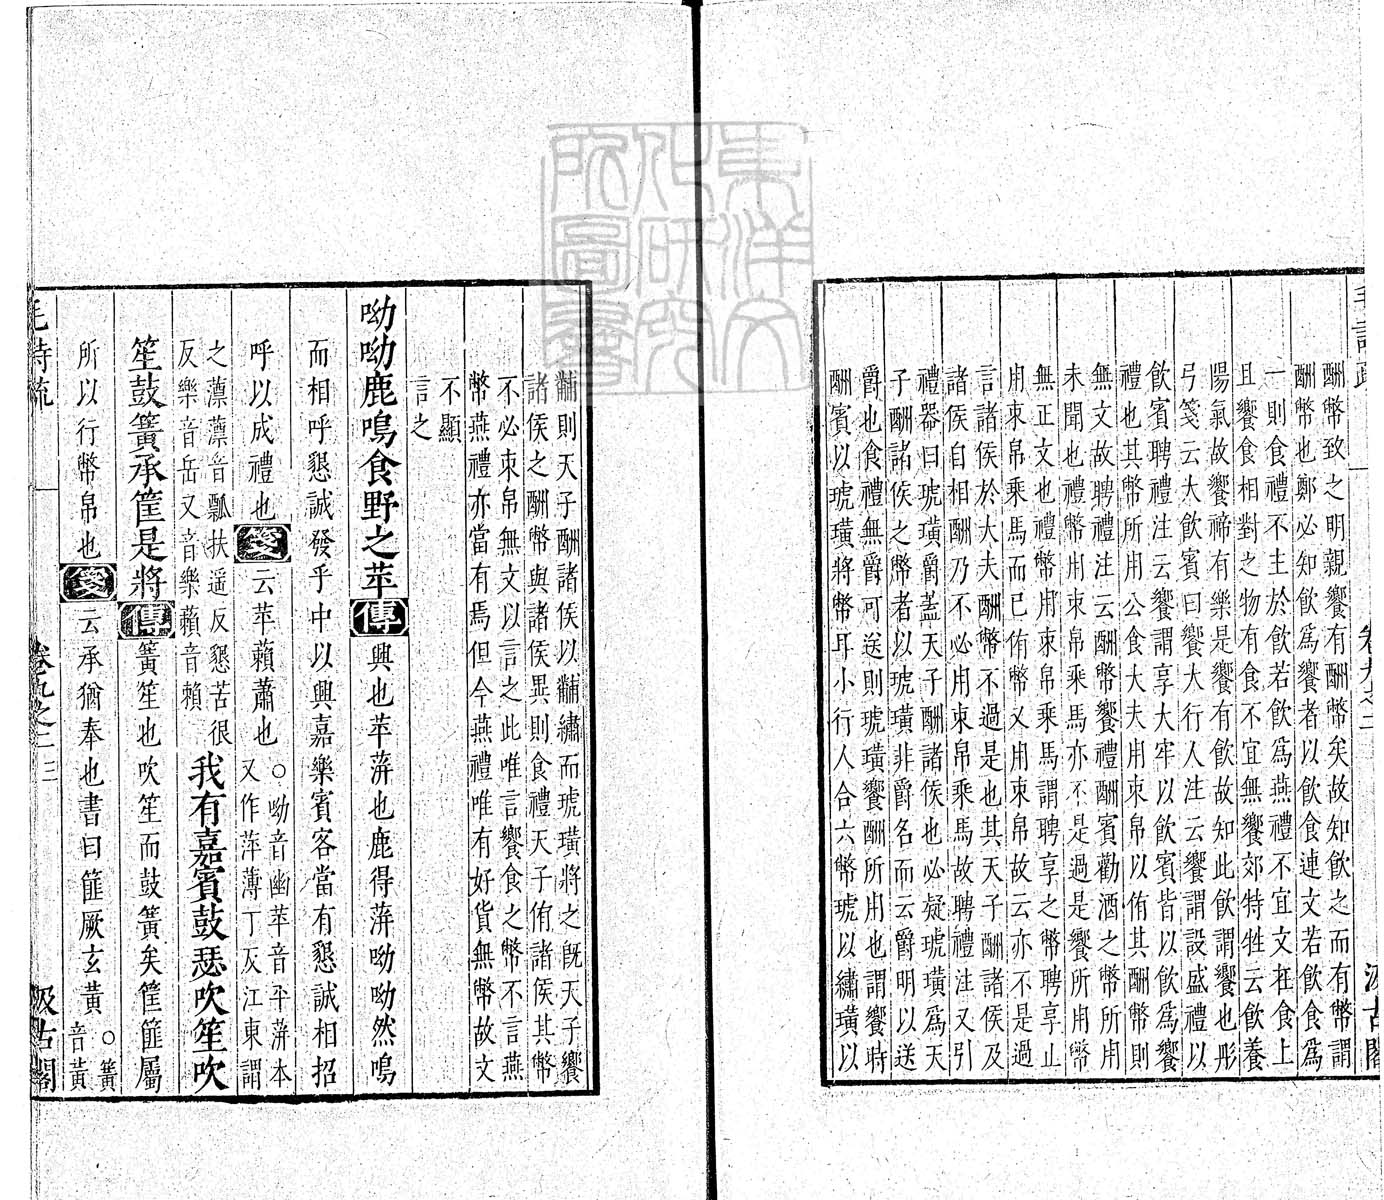 毛詩疏
卷九之二
汲古閣
酬幣致之明親饗有酬幣矣故知飲之而有幣謂
酬幣也鄭必知飲爲饗者以飲食連文若飲食爲
一則食禮不主於飲若飲爲燕禮不宜文在食上
且饗食相對之物有食不宜無饗郊特牲云飲養
陽氣故饗禘有樂是饗有飲故知此飲謂饗也彤
弓箋云大飲賓曰饗大行人注云饗謂設盛禮以
飲賓聘禮注云饗謂享大牢以飲賓皆以飲爲饗
禮也其幣所用公食大夫用束帛以侑其酬幣則
無文故聘禮注云酬幣饗禮酬賓勸酒之幣所用
未聞也禮幣用束帛乘馬亦不是過是饗所用幣
無正文也禮幣用束帛乘馬謂聘享之幣聘享止
用束帛乘馬而已侑幣又用束帛故云亦不是過
言諸侯於大夫酬幣不過是也其天子酬諸侯及
諸侯自相酬乃不必用束帛乘馬故聘禮注又引
禮器曰琥璜爵蓋天子酬諸侯也必疑琥璜爲天
子酬諸侯之幣者以琥璜非爵名而云爵明以送
爵也食禮無爵可送則琥璜饗酬所用也謂饗時
酬賓以琥璜將幣耳小行人合六幣琥以繡璜以
黼則天子酬諸侯以黼繡而琥璜將之旣天子饗
諸侯之酬幣與諸侯異則食禮天子侑諸侯其幣
不必束帛無文以言之此唯言饗食之幣不言燕
幣燕禮亦當有焉但今燕禮唯有好貨無幣故文
不顯
言之
呦呦鹿鳴食野之苹傳興也苹蓱也鹿得蓱呦呦然鳴
而相呼懇誠發乎中以興嘉樂賓客當有懇誠相招
呼以成禮也箋云苹藾蕭也○呦音幽苹音平蓱本
又作萍薄丁反江東謂
之薸薸音瓢扶遥反懇苦很
反樂音岳又音樂藾音賴我有嘉賓鼓瑟吹笙吹
笙鼓簧承筐是將傳簧笙也吹笙而鼓簧矣筐篚屬
所以行幣帛也箋云承猶奉也書曰篚厥玄黃○簧
音黃
毛詩疏
卷九之二
三
汲古閣
東洋文化研究所圖書